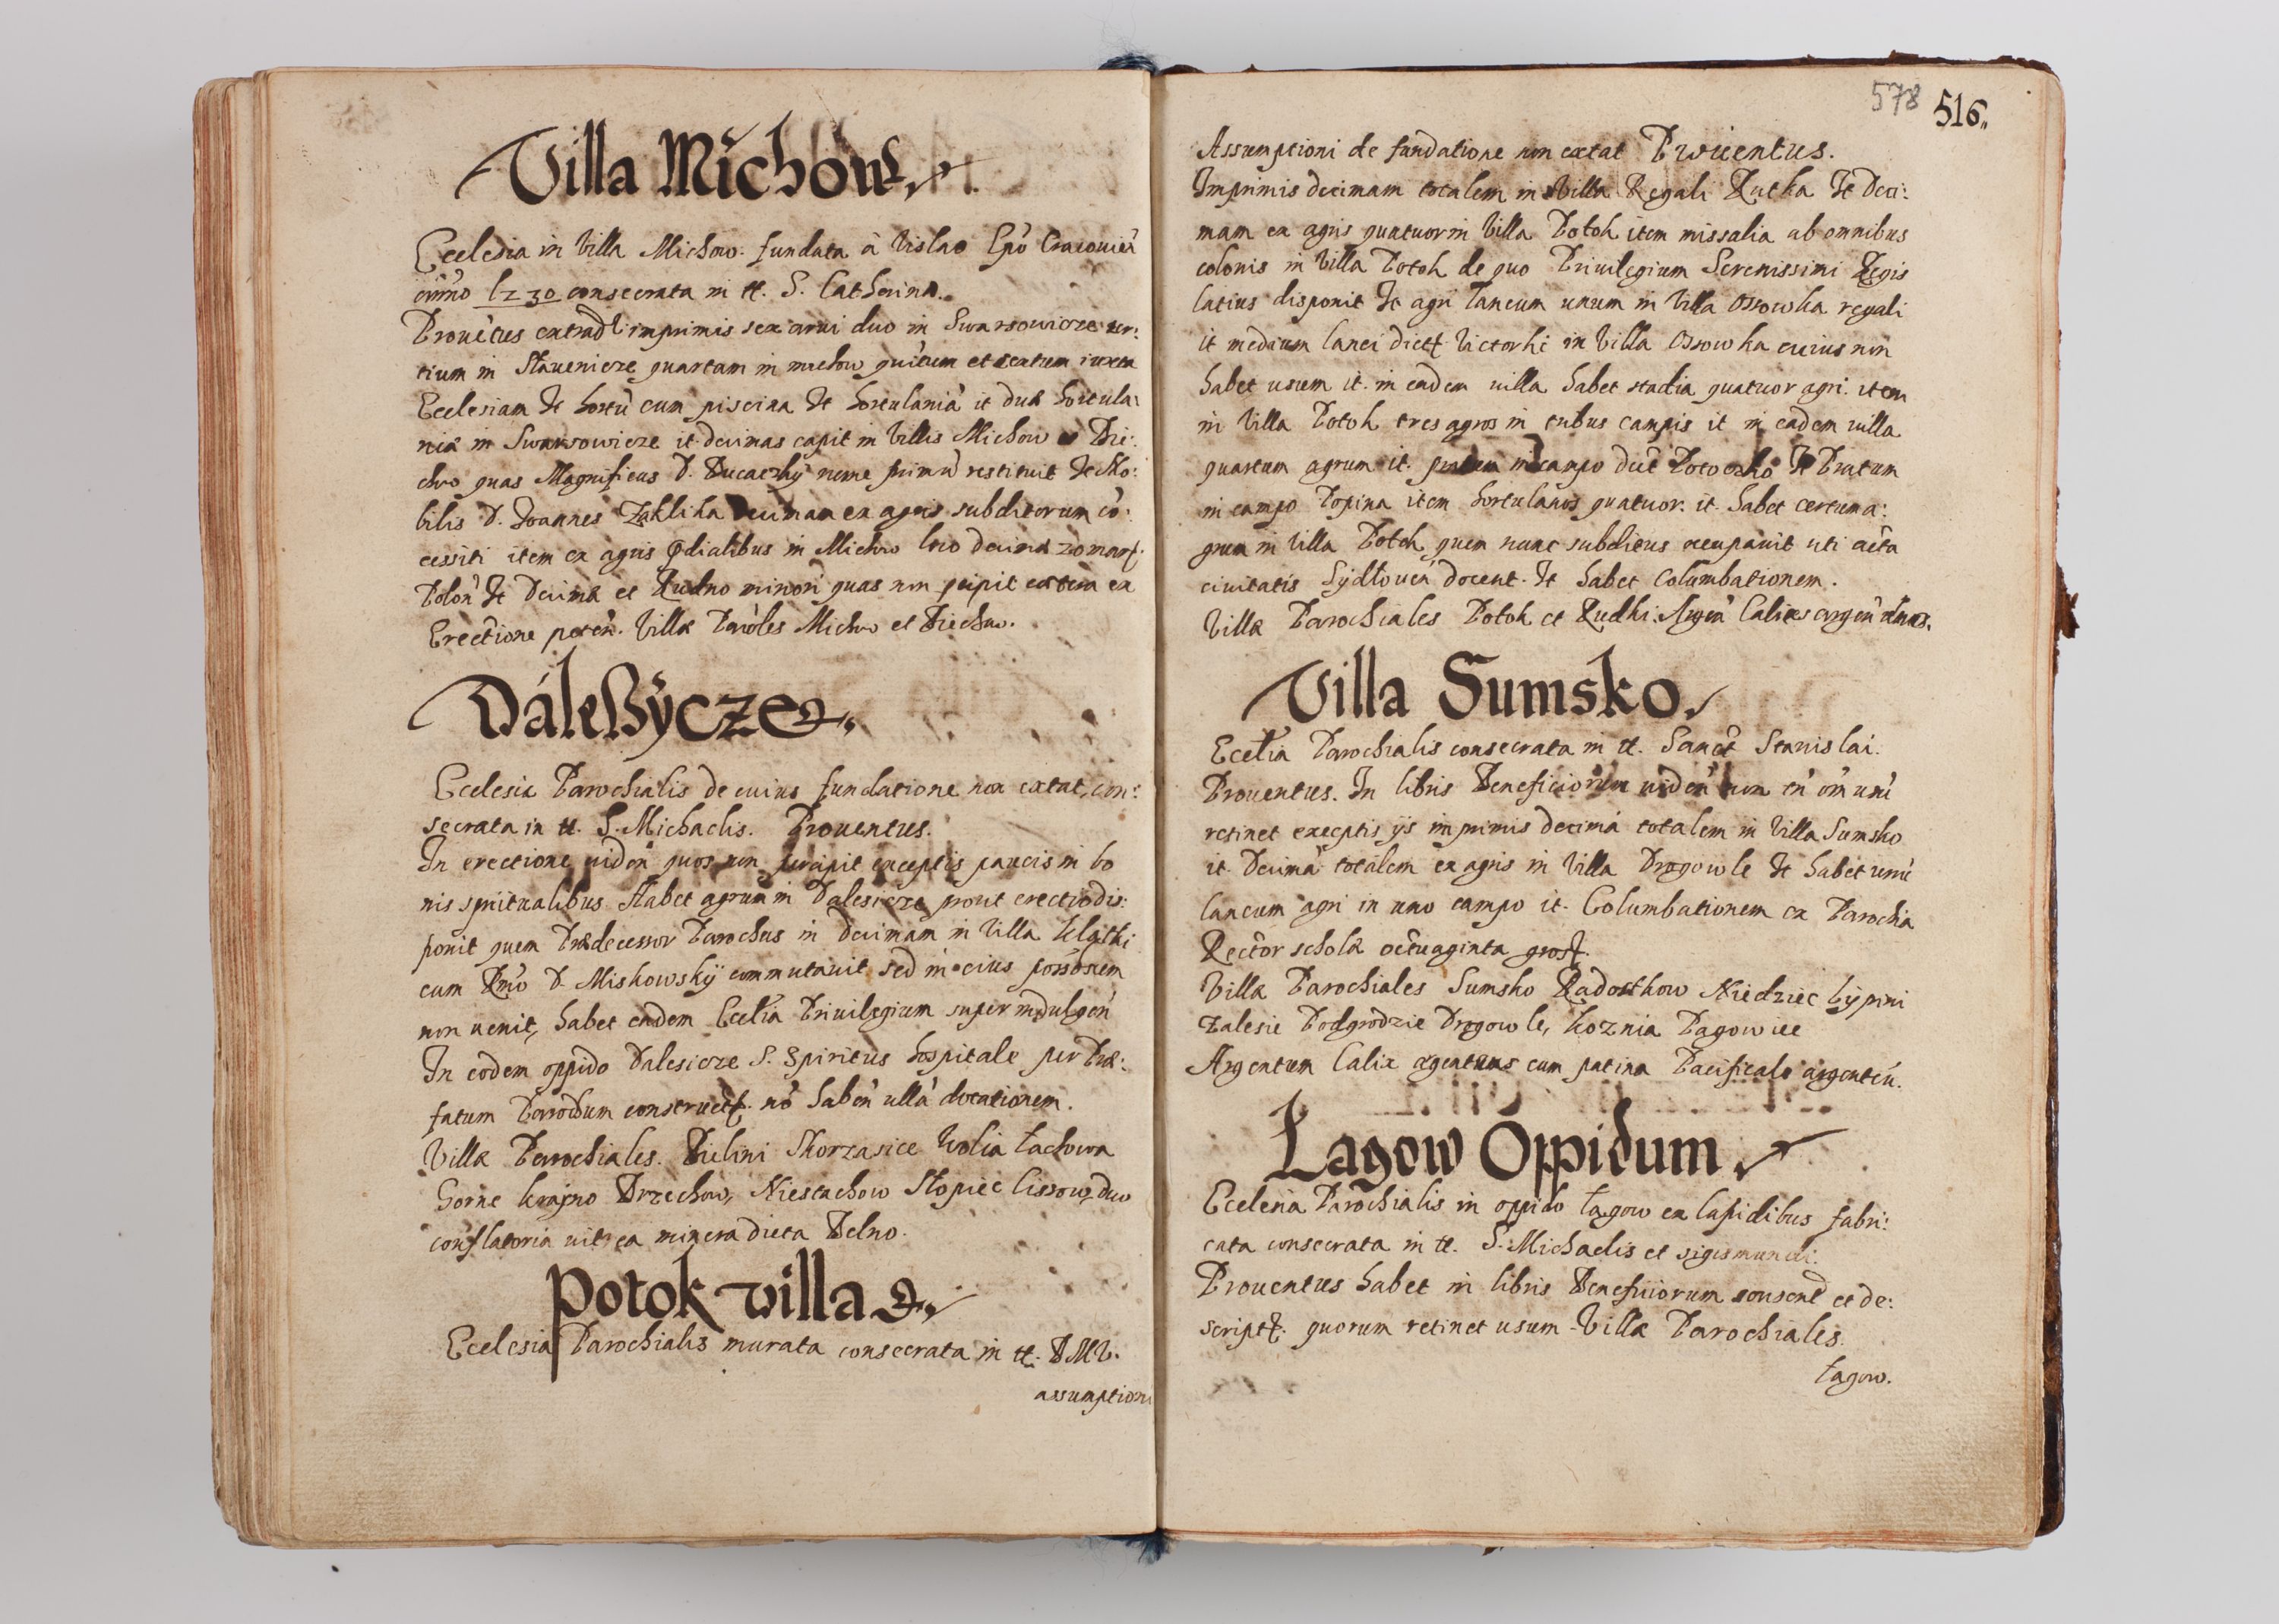 Villa Michow
Ecclesia in Villa Michow. fundata à Vislao Epō Cracouieñ
anno 1230 consecrata in tt. S. Catherinæ.
imprimis sex arui duo in Swarsowicze ter:
tium in Stauenicze quartam in michow quītum et sextum iuxta
Ecclesiam It hortū cum piscina It hortulaniā it duæ hortula:
niæ in Swarsowicze it decimas capit in Villis Michow Bie:
chow quas Magnificus D. nunc primū restituit It
bilis D. Joannes Zaklika decimam ex agris subditorum cō:
cessiti item ex agris in Michow loco decimæ 20 marχ.
Polon̄ It Decimæ et Rudno minori quas non ꝑcipit extra ex
Erectione peten̄. Villæ Paroles Michow et Biechow.
Daleßÿcze
Ecclesia Parochialis de cuius fundatione non extat, con:
secrata in tt. S. Michaelis. Prouentus.
In erectione viden̄ quos non percipit exceptis paucis in bo
nis spiitualibus Habet agrum in Dalesicze prout erectio dis:
ponit quem Prædecessor Parochus in Decimam in Villa
cum Rmō D. Miskowskÿ commutauit sed in eius possōnem
non uenit, habet eadem Ecclīa Priuilegium super indulgen̄
In eodem oppido Dalesicze S. Spiritus hospitale per Præ:
fatum Parochum nō haben̄ ullā dotationem.
Villæ Parochiales. Bielini Skorzasice Wolia Łachowa
Gorne krajno Brzechow, Niestachow Słopiec Lissow, duo
conflatoria uitrea minera dicta Belno.
Potok villa
Ecclesia Parochialis murata consecrata in tt. B M V.
assumptioni
578 516
Assumptioni de fundatione non extat Prouentus.
Imprimis decimam totalem in Villa Regali Rutka It Deci:
mam ex agris quatuor in Villa Potok item missalia ab omnibus
colonis in Villa Potok de quo Priuilegium Serenissimi Regis
latius disponit It agri laneum unum in Villa Ossowka regali
it medium lanei Victorki in Villa Ossowka cuius non
habet usum it. in eadem uilla habet stadia quatuor agri. item
in Villa Potok tres agros in tribus campis it in eadem uilla
quartum agrum it. in campo It Pratum
in campo Topina item hortulanos quatuor. it. habet certum a:
grum in Villa Potok quem nunc subditus occupauit uti acta
ciuitatis Sÿdłouen̄ docent. It habet Columbationem.
Villæ Parochiales Potok et Rudki. Argen̄ Calices argen̄ duos.
Villa Sumsko
Ecclīa Parochialis consecrata in tt. Sancti Stanislai.
Prouentus. In libris Beneficiorum uiden̄ non tn̄ om̄
retinet exceptis ijs imprimis decimā totalem in Villa Sumsko
it. Decimā totalem ex agris in Villa Drogowle It habet unū
laneum agri in uno campo it. Columbationem ex Parochia
Rector scholæ octuaginta
Villæ Parochiales Sumsko Radostkow Niedziec
Zalesie Podgrodzie Drogowle,
Argentum Calix argenteus cum patina Pacificale argenteū.
Lagow Oppidum
Ecclesia Parochialis in oppido Łagow ex lapidibus fabri:
cata consecrata in tt. S. Michaelis et sigismundi.
Prouentus habet in libris Beneficiorum et de:
script. quorum retinet usum. Villæ Parochiales.
Łagow.